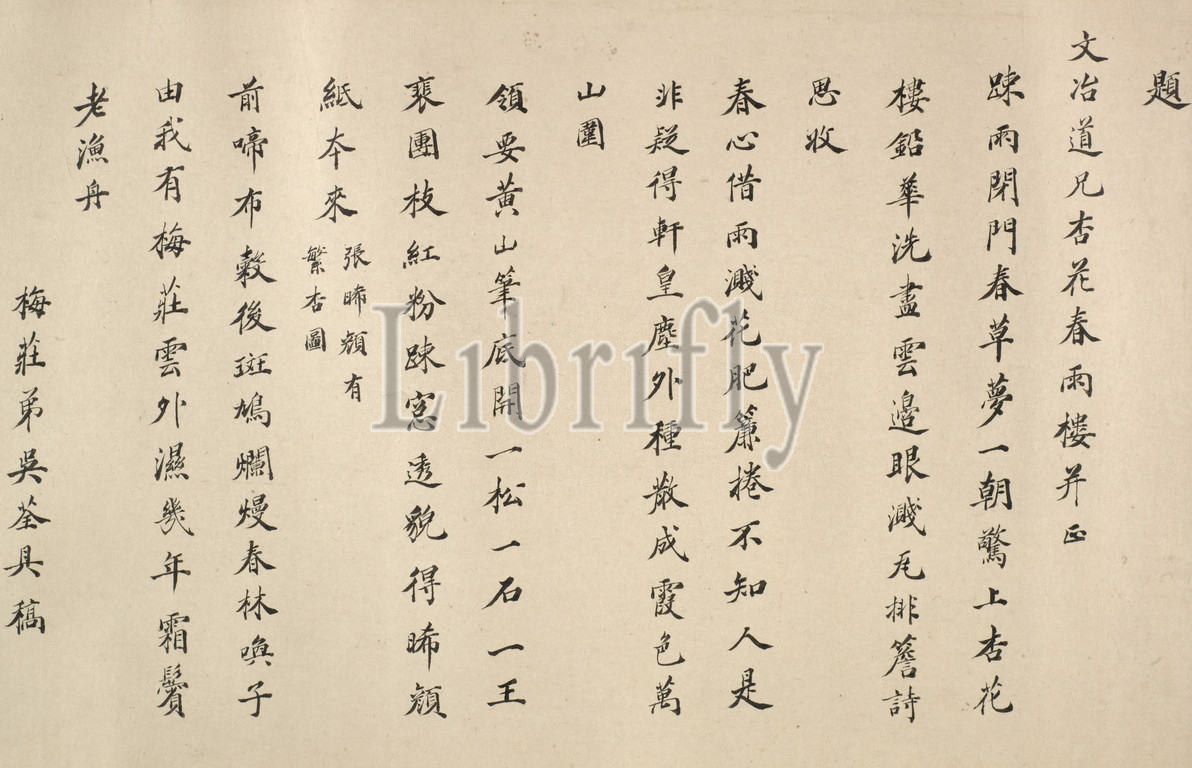 題
文冶道兄杏花春雨樓并正
踈雨閉門春草夢一朝驚上杏花
樓鉛華洗盡雲邉眼濺瓦排簷詩
思收
春心借雨濺花肥簾捲不知人是
非疑得軒皇塵外種散成霞色萬
山圍
領要黃山筆底開一松一石一王
裴團枝紅粉踈窓透貌得晞顔
紙夲來 張晞顔有
繁杏圖
前啼布穀後斑鳩爛熳春林喚子
由我有梅莊雲外濕幾年霜鬢
老漁舟
梅莊弟吳荃具稿
Librifly